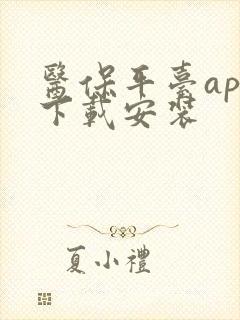 醫保平臺ap
下載安裝
夏小禮